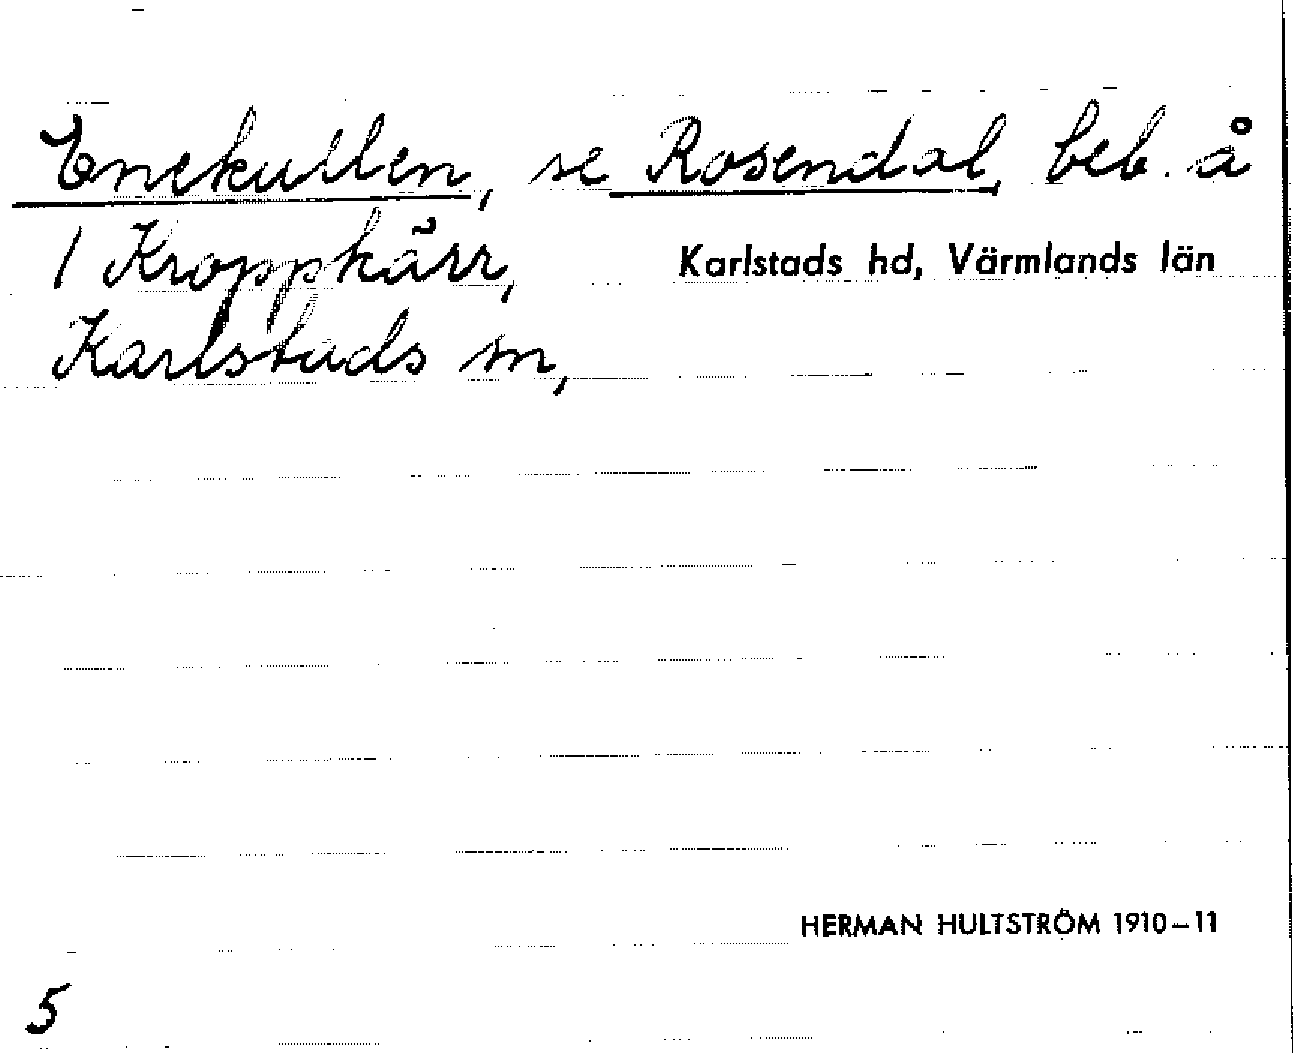 Enekullen, se Rosendal, beb. å
1 Kroppkärr, Karlstads hd, Värmlands län
Karlstads sn,
HERMAN HULTSTRÖM 1910–11
5